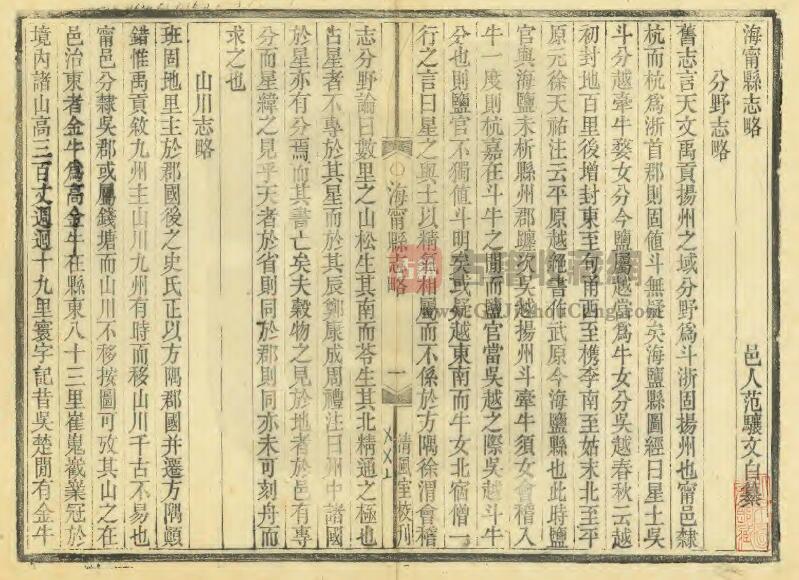 海甯縣志略
邑人范驤文白纂
分野志略
舊志言天文禹貢揚州之域分野爲斗浙固揚州也甯邑隸
杭而杭爲浙首郡則固値斗無疑矣海鹽縣圖經曰星土吳
斗分越牽牛婺女分今鹽屬越當爲牛女分吳越春秋云越
初封地百里後增封東至句甬西至檇李南至姑末北至平
原元徐天祜注云平原越絕書作武原今海鹽縣也此時鹽
官與海鹽未析縣州郡躔次吳越揚州斗牽牛須女會稽入
牛一度則杭嘉在斗牛之閒而鹽官當吳越之際吳越斗牛
分也則鹽官不獨値斗明矣或疑越東南而牛女北宿僧一
行之言曰星之與土以精氣相屬而不係於方隅徐渭會稽
海甯縣志略
一
清風室校刊
志分野論曰數里之山松生其南而苓生其北精通之極也
占星者不專於其星而於其辰鄭康成周禮注曰州中諸國
於星亦有分焉而其書亡矣夫穀物之見於地者於邑有專
分而星緯之見乎天者於省則同於郡則同亦未可刻舟而
求之也
山川志略
班固地里主於郡國後之史氏正以方隅郡國并遷方隅顚
錯惟禹貢敘九州主山川九州有時而移山川千古不易也
甯邑分隸吳郡或屬錢塘而山川不移按圖可攷其山之在
邑治東者金牛爲高金牛在縣東八十三里崔嵬巀嶪冠於
境內諸山高三百丈週迴十九里寰宇記昔吳楚閒有金牛